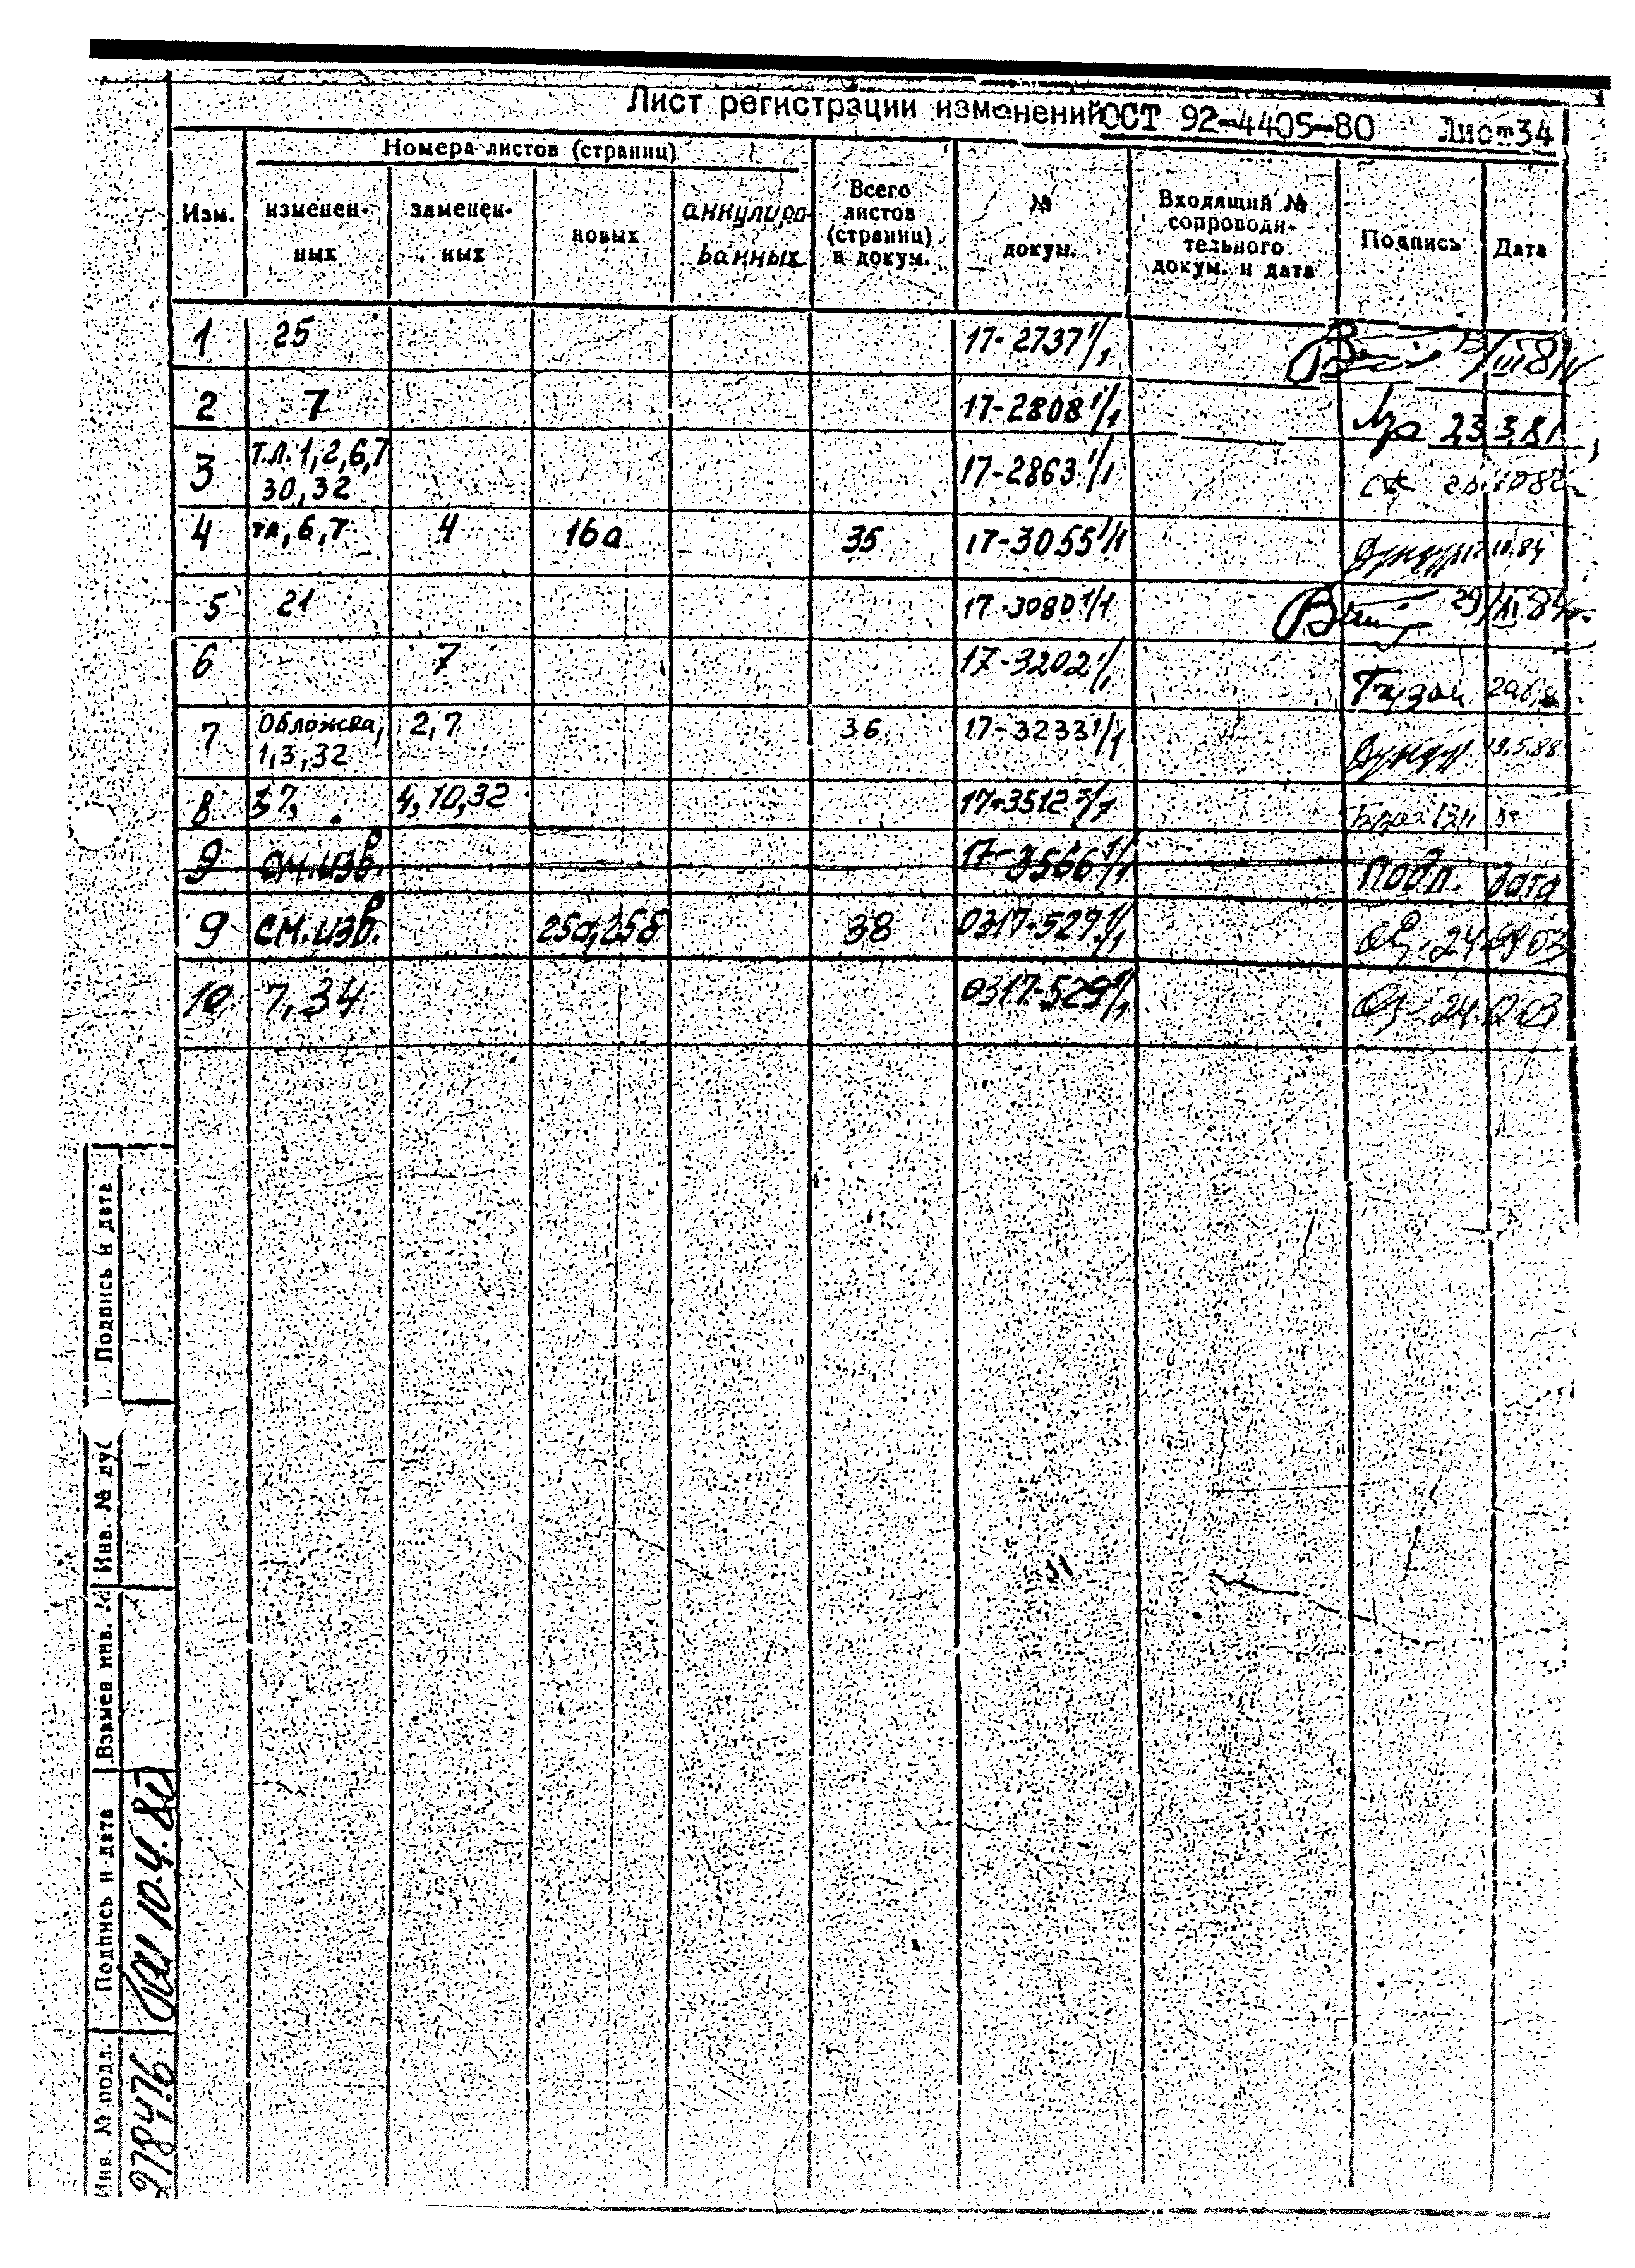 Лист регистрации изменений ОСТ 92-4405-80 Лист 34
Номера листов (страниц)
Изм. изменен- ных заменен- ных новых аннулиро- ванных Всего листов (страниц) в докум. № докум. Входящий № сопроводи- тельного докум. и дата Подпись Дата
1 25 17-2737 1/1
2 7 17-2808 1/1 23.3.81
3 т.л. 1,2,6,7 30,32 17-2863 1/1
4 тл,6,7 4 16а 35 17-3055 1/1 10.84
5 21 17-3080 1/1 29/XI 84
6 7 17-3202 1/1
7 Обложка, 1,3,32 2,7 36 17-3233 1/1 19.5.88
8 4,10,32 17-3512
9 см.изв. 17-3566 1/1 Подп. дата
9 см.изв. 25а,25б 38 0317-527 1/1 24. 03
10 7,34 0317-529 1/1 24.12.03
Подпись и дата
Инв. № ду
Взамен инв. №
Подпись и дата 10.4.80
Инв. № подл. 278476